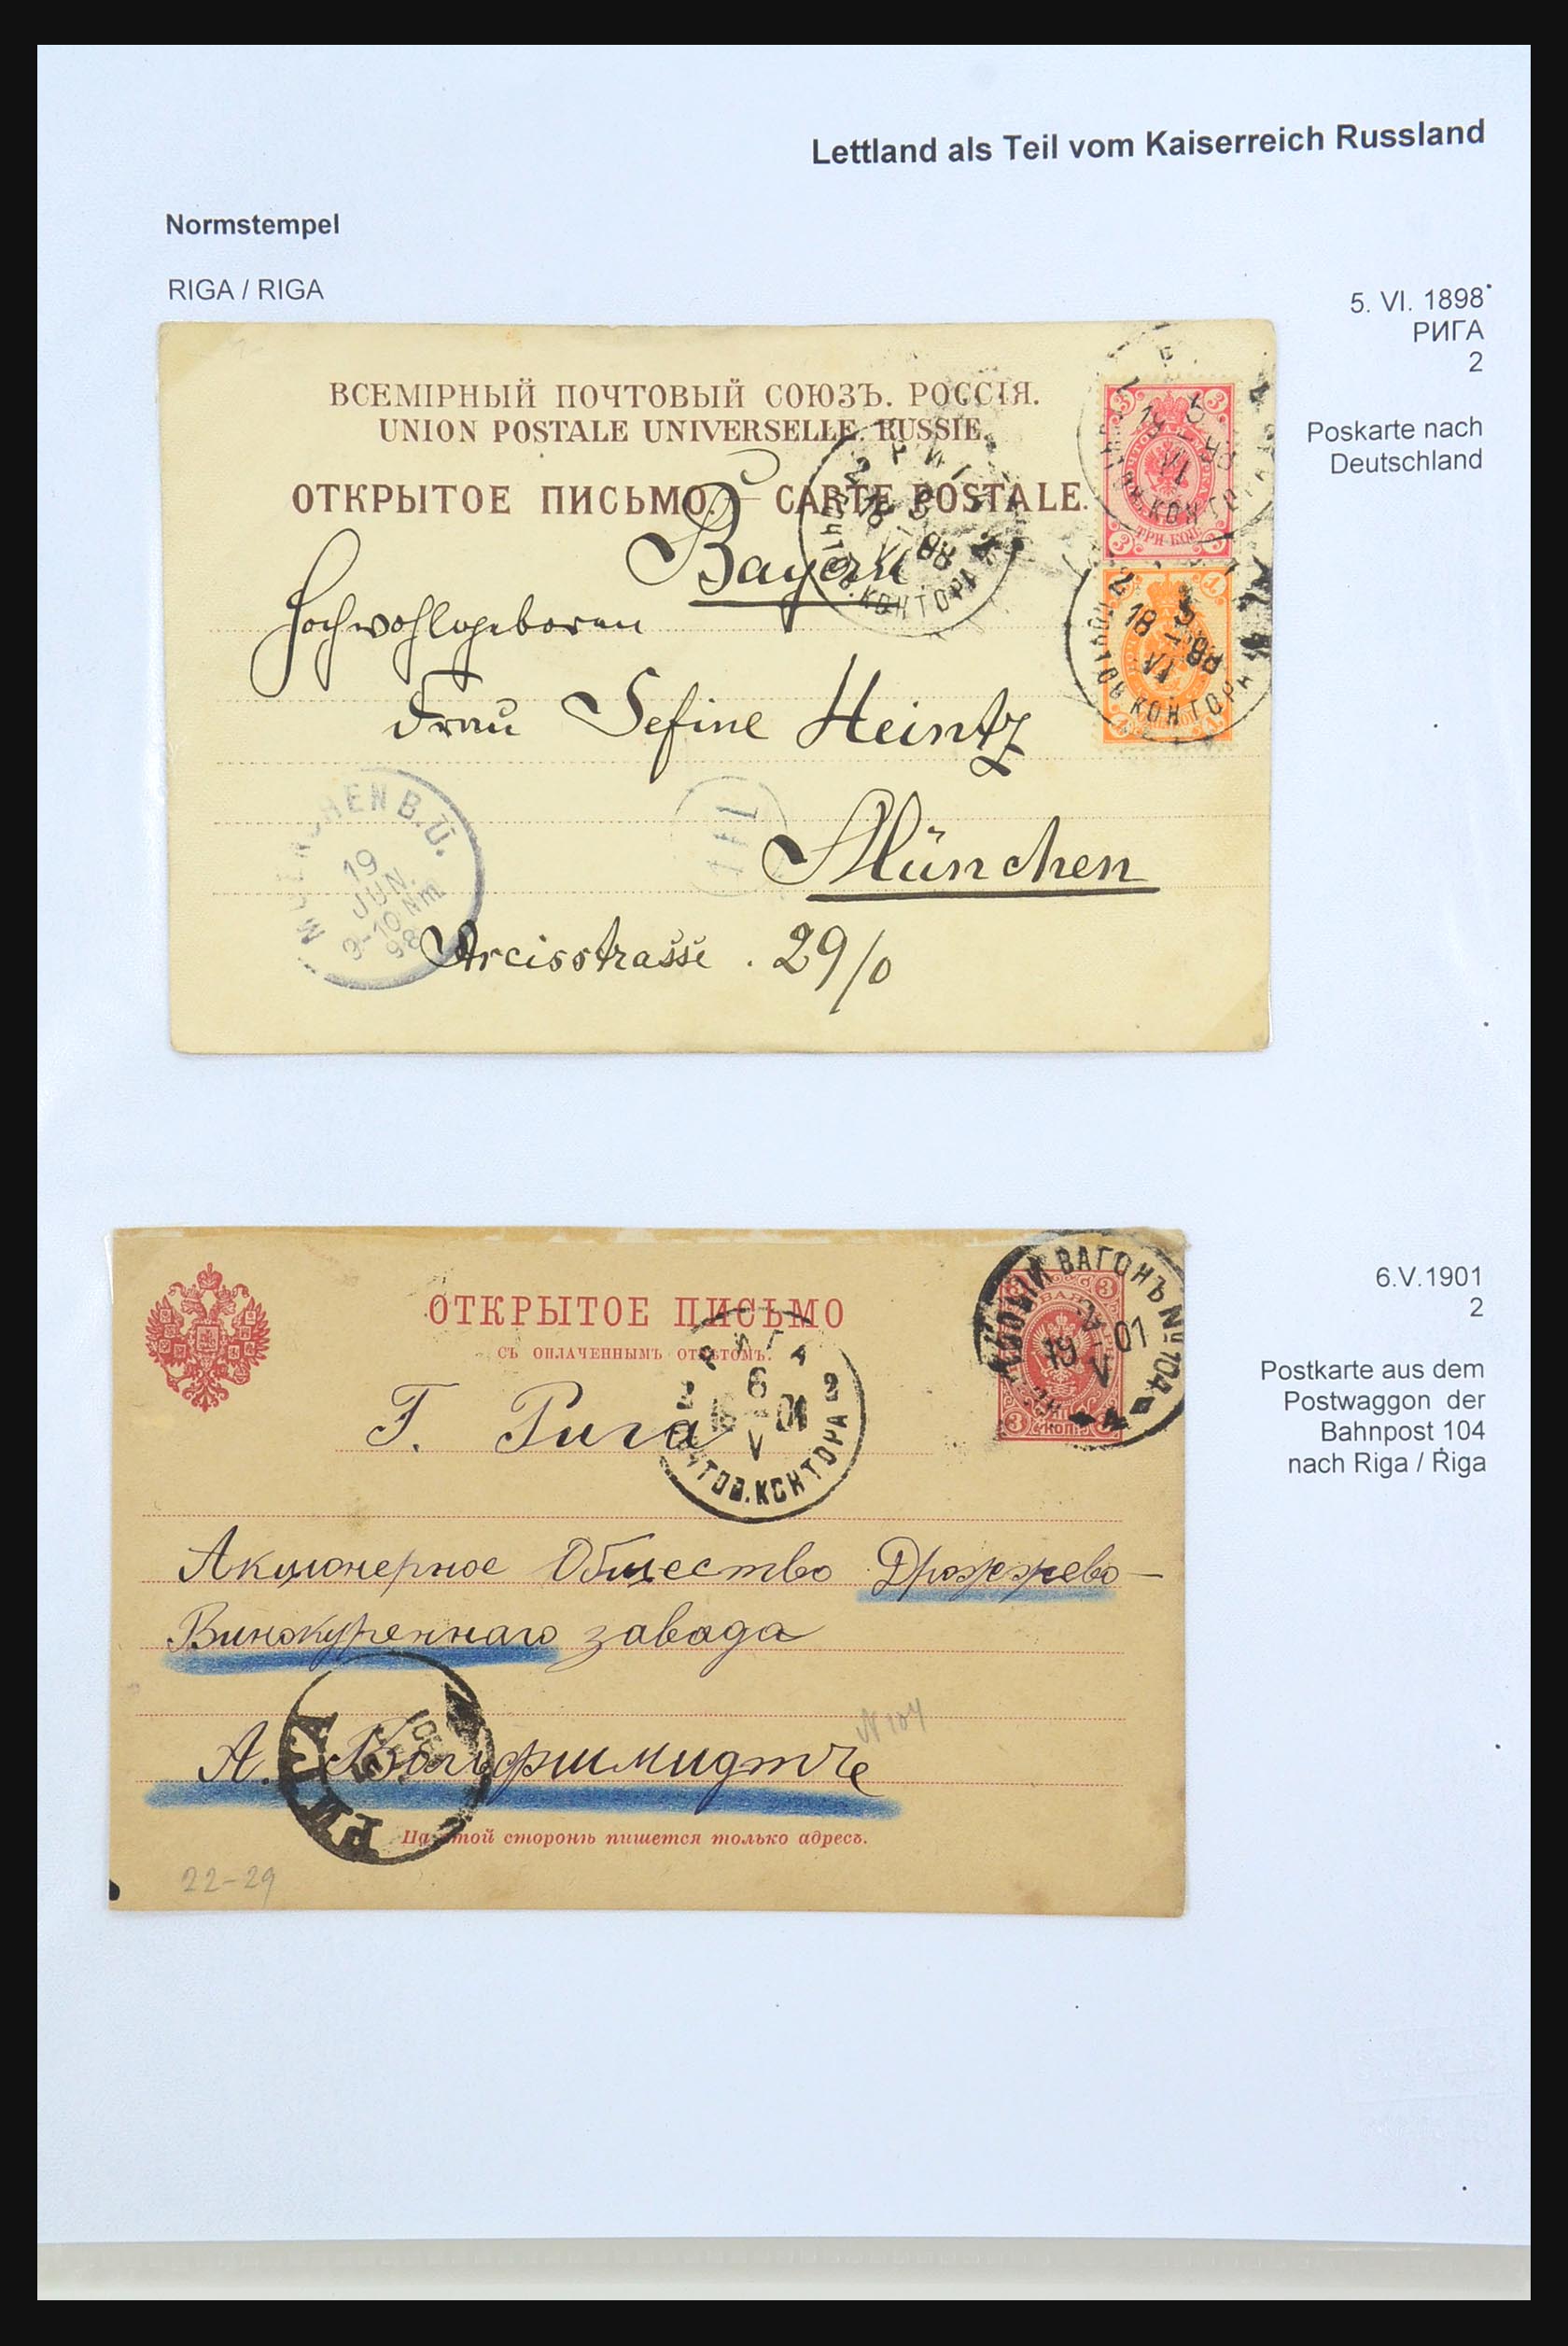 Lettland als Teil vom Kaiserreich Russland
Normstempel
RIGA / RIGA
5. VI. 1898
РИГА
2
Poskarte nach
Deutschland
ВСЕМІРНЫЙ ПОЧТОВЫЙ СОЮЗЪ. РОССІЯ.
UNION POSTALE UNIVERSELLE. RUSSIE.
ОТКРЫТОЕ ПИСЬМО. — CARTE POSTALE.
Bayern.
Hochwohlgeboren
Frau Sefine Heintz
München
Arcisstrasse . 29/0
MUENCHEN B.Ü.
19
JUN.
3-10 Nm
98
РИГА
2
18 5 98
VI
ПОЧТОВ. КОНТОРА
ТРИ КОП.
2
18 5 98
VI
ПОЧТОВ. КОНТОРА
6.V.1901
2
Postkarte aus dem
Postwaggon der
Bahnpost 104
nach Riga / Riga
ОТКРЫТОЕ ПИСЬМО
СЪ ОПЛАЧЕННЫМЪ ОТВѢТОМЪ.
Г. Рига
Акционерное Общество Дрожжево-
Винокуреннаго завода
А. Вольфшмидтъ
N 104
На этой сторонѣ пишется только адресъ.
22-29
ПОЧТОВЫЙ ВАГОНЪ № 104
2
19 01
V
4
РИГА
2 6 2
18 01
V
ПОЧТОВ. КОНТОРА
РИГА
1901